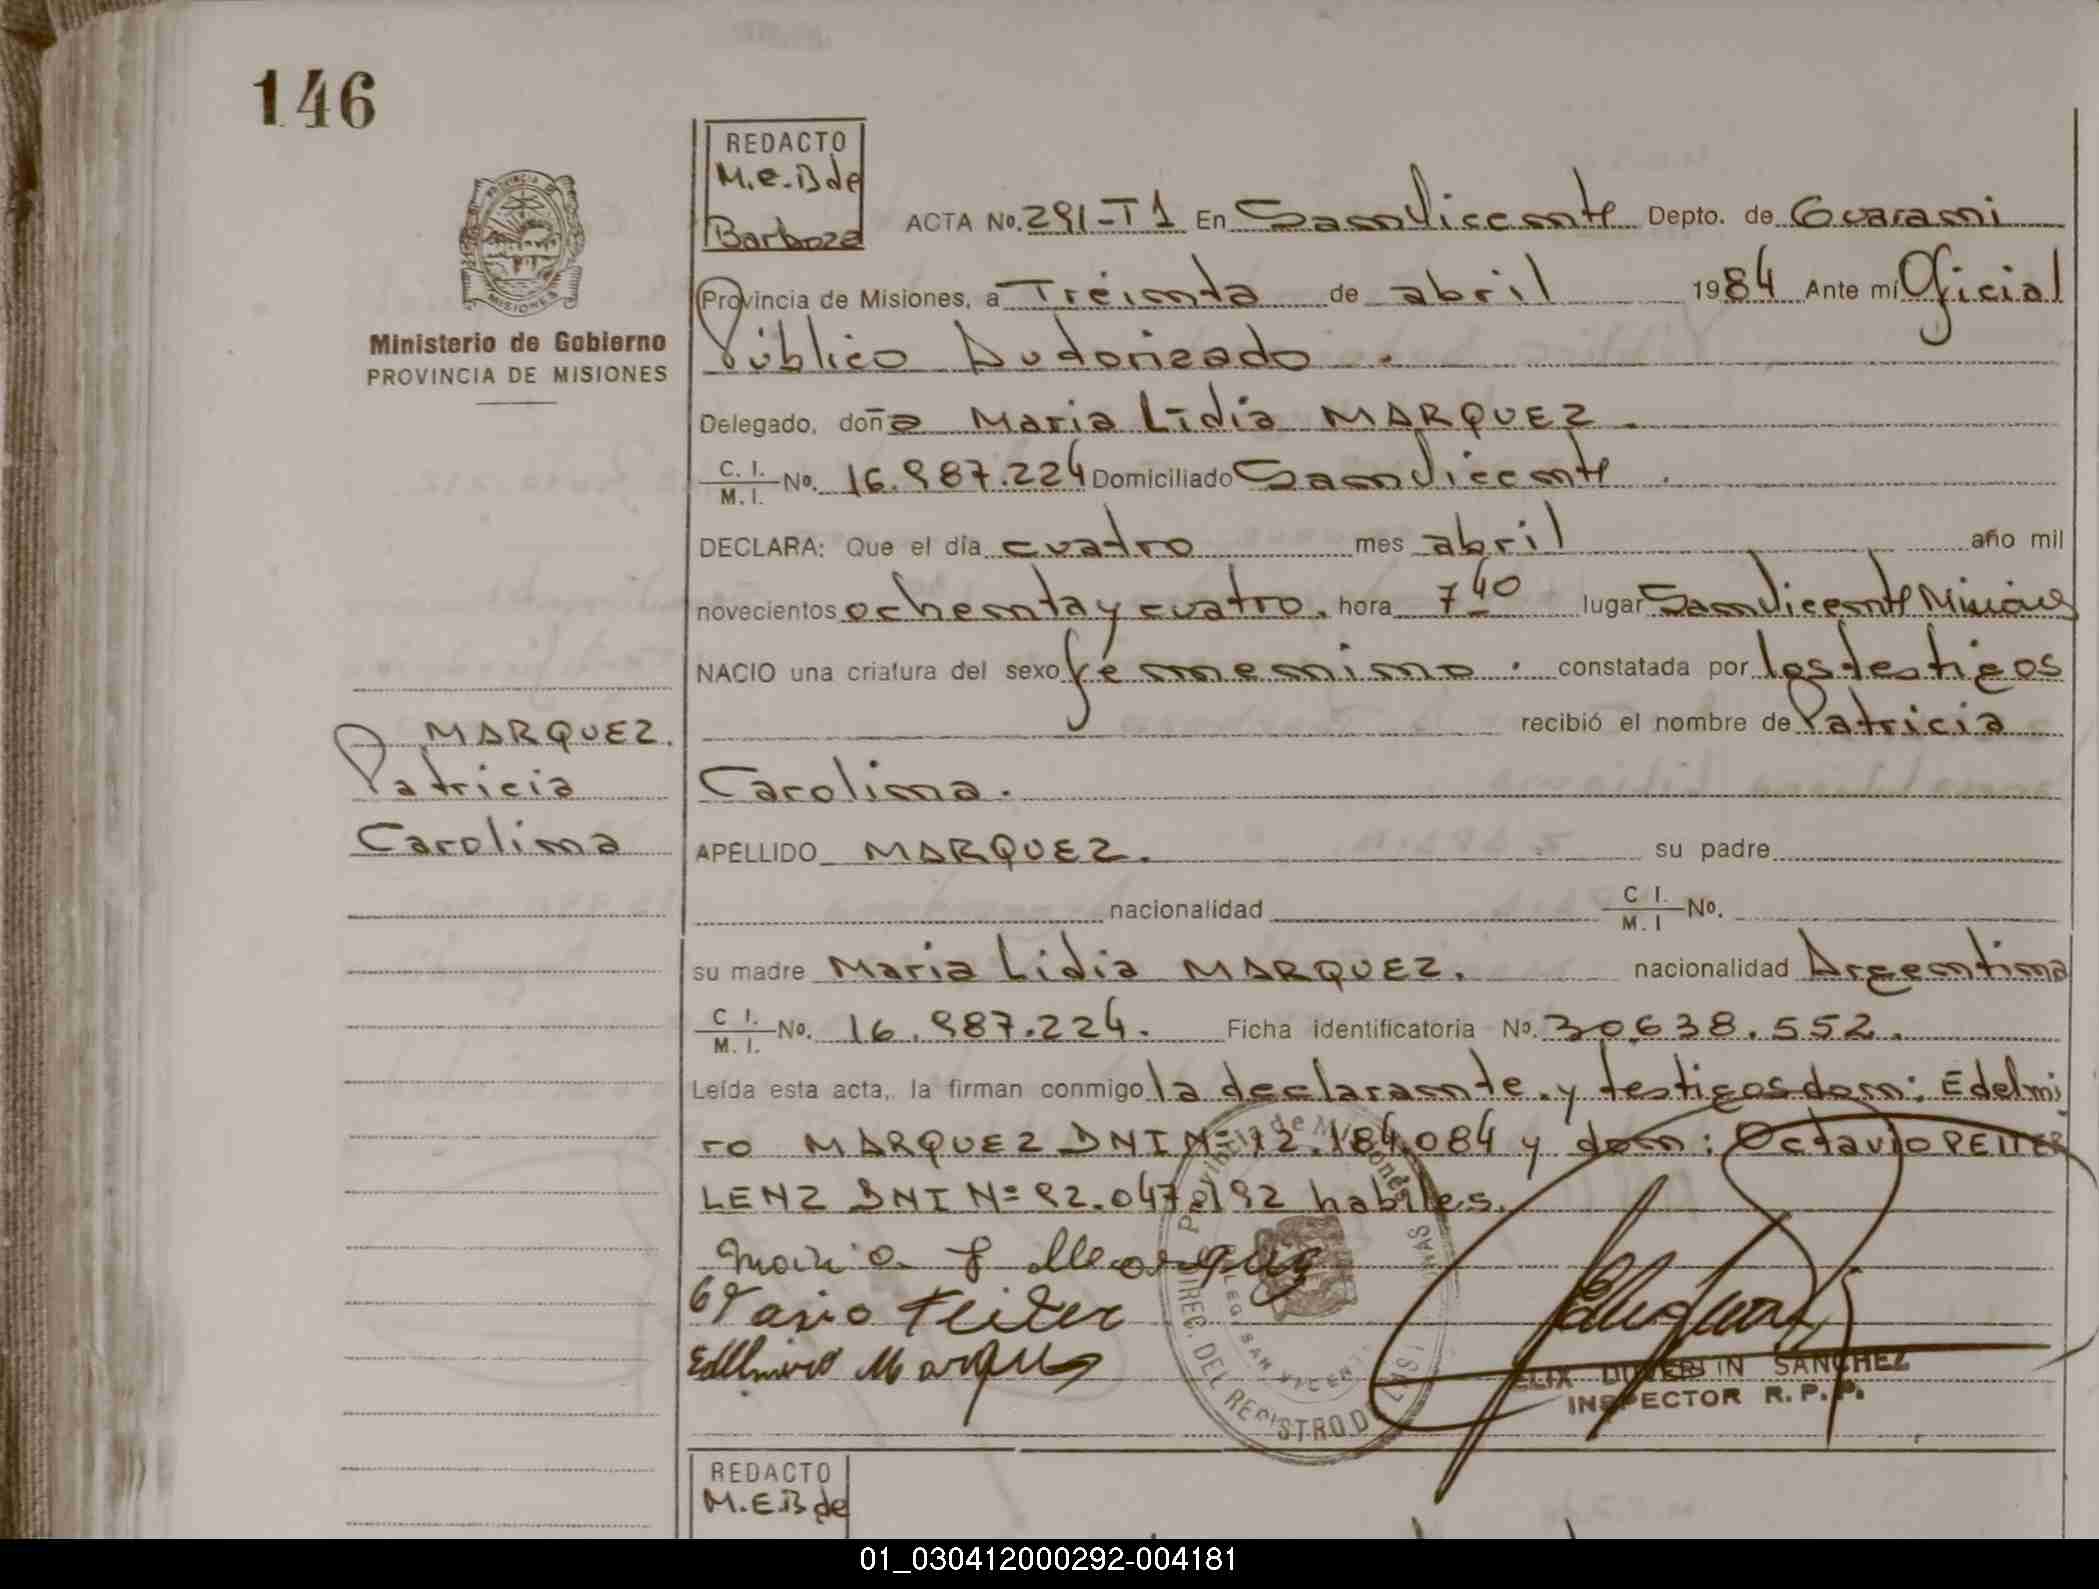 146
REDACTO
M.e.B de
Barboza
ACTA No. 291-T1 En San Vicente Depto. de Guarani
PROVINCIA DE
MISIONES
Ministerio de Gobierno
PROVINCIA DE MISIONES
Provincia de Misiones, a Treinta de abril 1984 Ante mí Oficial
Público Autorizado.
Delegado, doña Maria Lidia MARQUEZ.
C. I.
M. I. No. 16.987.224 Domiciliado San Vicente.
DECLARA: Que el día cuatro mes abril año mil
novecientos ochenta y cuatro. hora 7 40 lugar San Vicente Misiones
NACIO una criatura del sexo femenino. constatada por los testigos
recibió el nombre de Patricia
MARQUEZ.
Patricia
Carolina
Carolina.
APELLIDO MARQUEZ. su padre
nacionalidad C I. M. I No.
su madre Maria Lidia MARQUEZ. nacionalidad Argentina
C I.
M. I. No. 16.987.224. Ficha identificatoria No. 30.638.552.
Leída esta acta, la firman conmigo la declarante. y testigos don: Edelmi
ro MARQUEZ DNI Nº 12.184.084 y don: Octavio PEITER
LENZ DNI Nº 92.047.192 habiles.
Maria L Marquez
Peiter
Edelmiro Marquez
Provincia de Misiones
DIREC. DEL REGISTRO DE LAS
DELEG. SAN VICENTE
SANCHEZ
INSPECTOR R. P. P.
REDACTO
M.E.B de
01_030412000292-004181